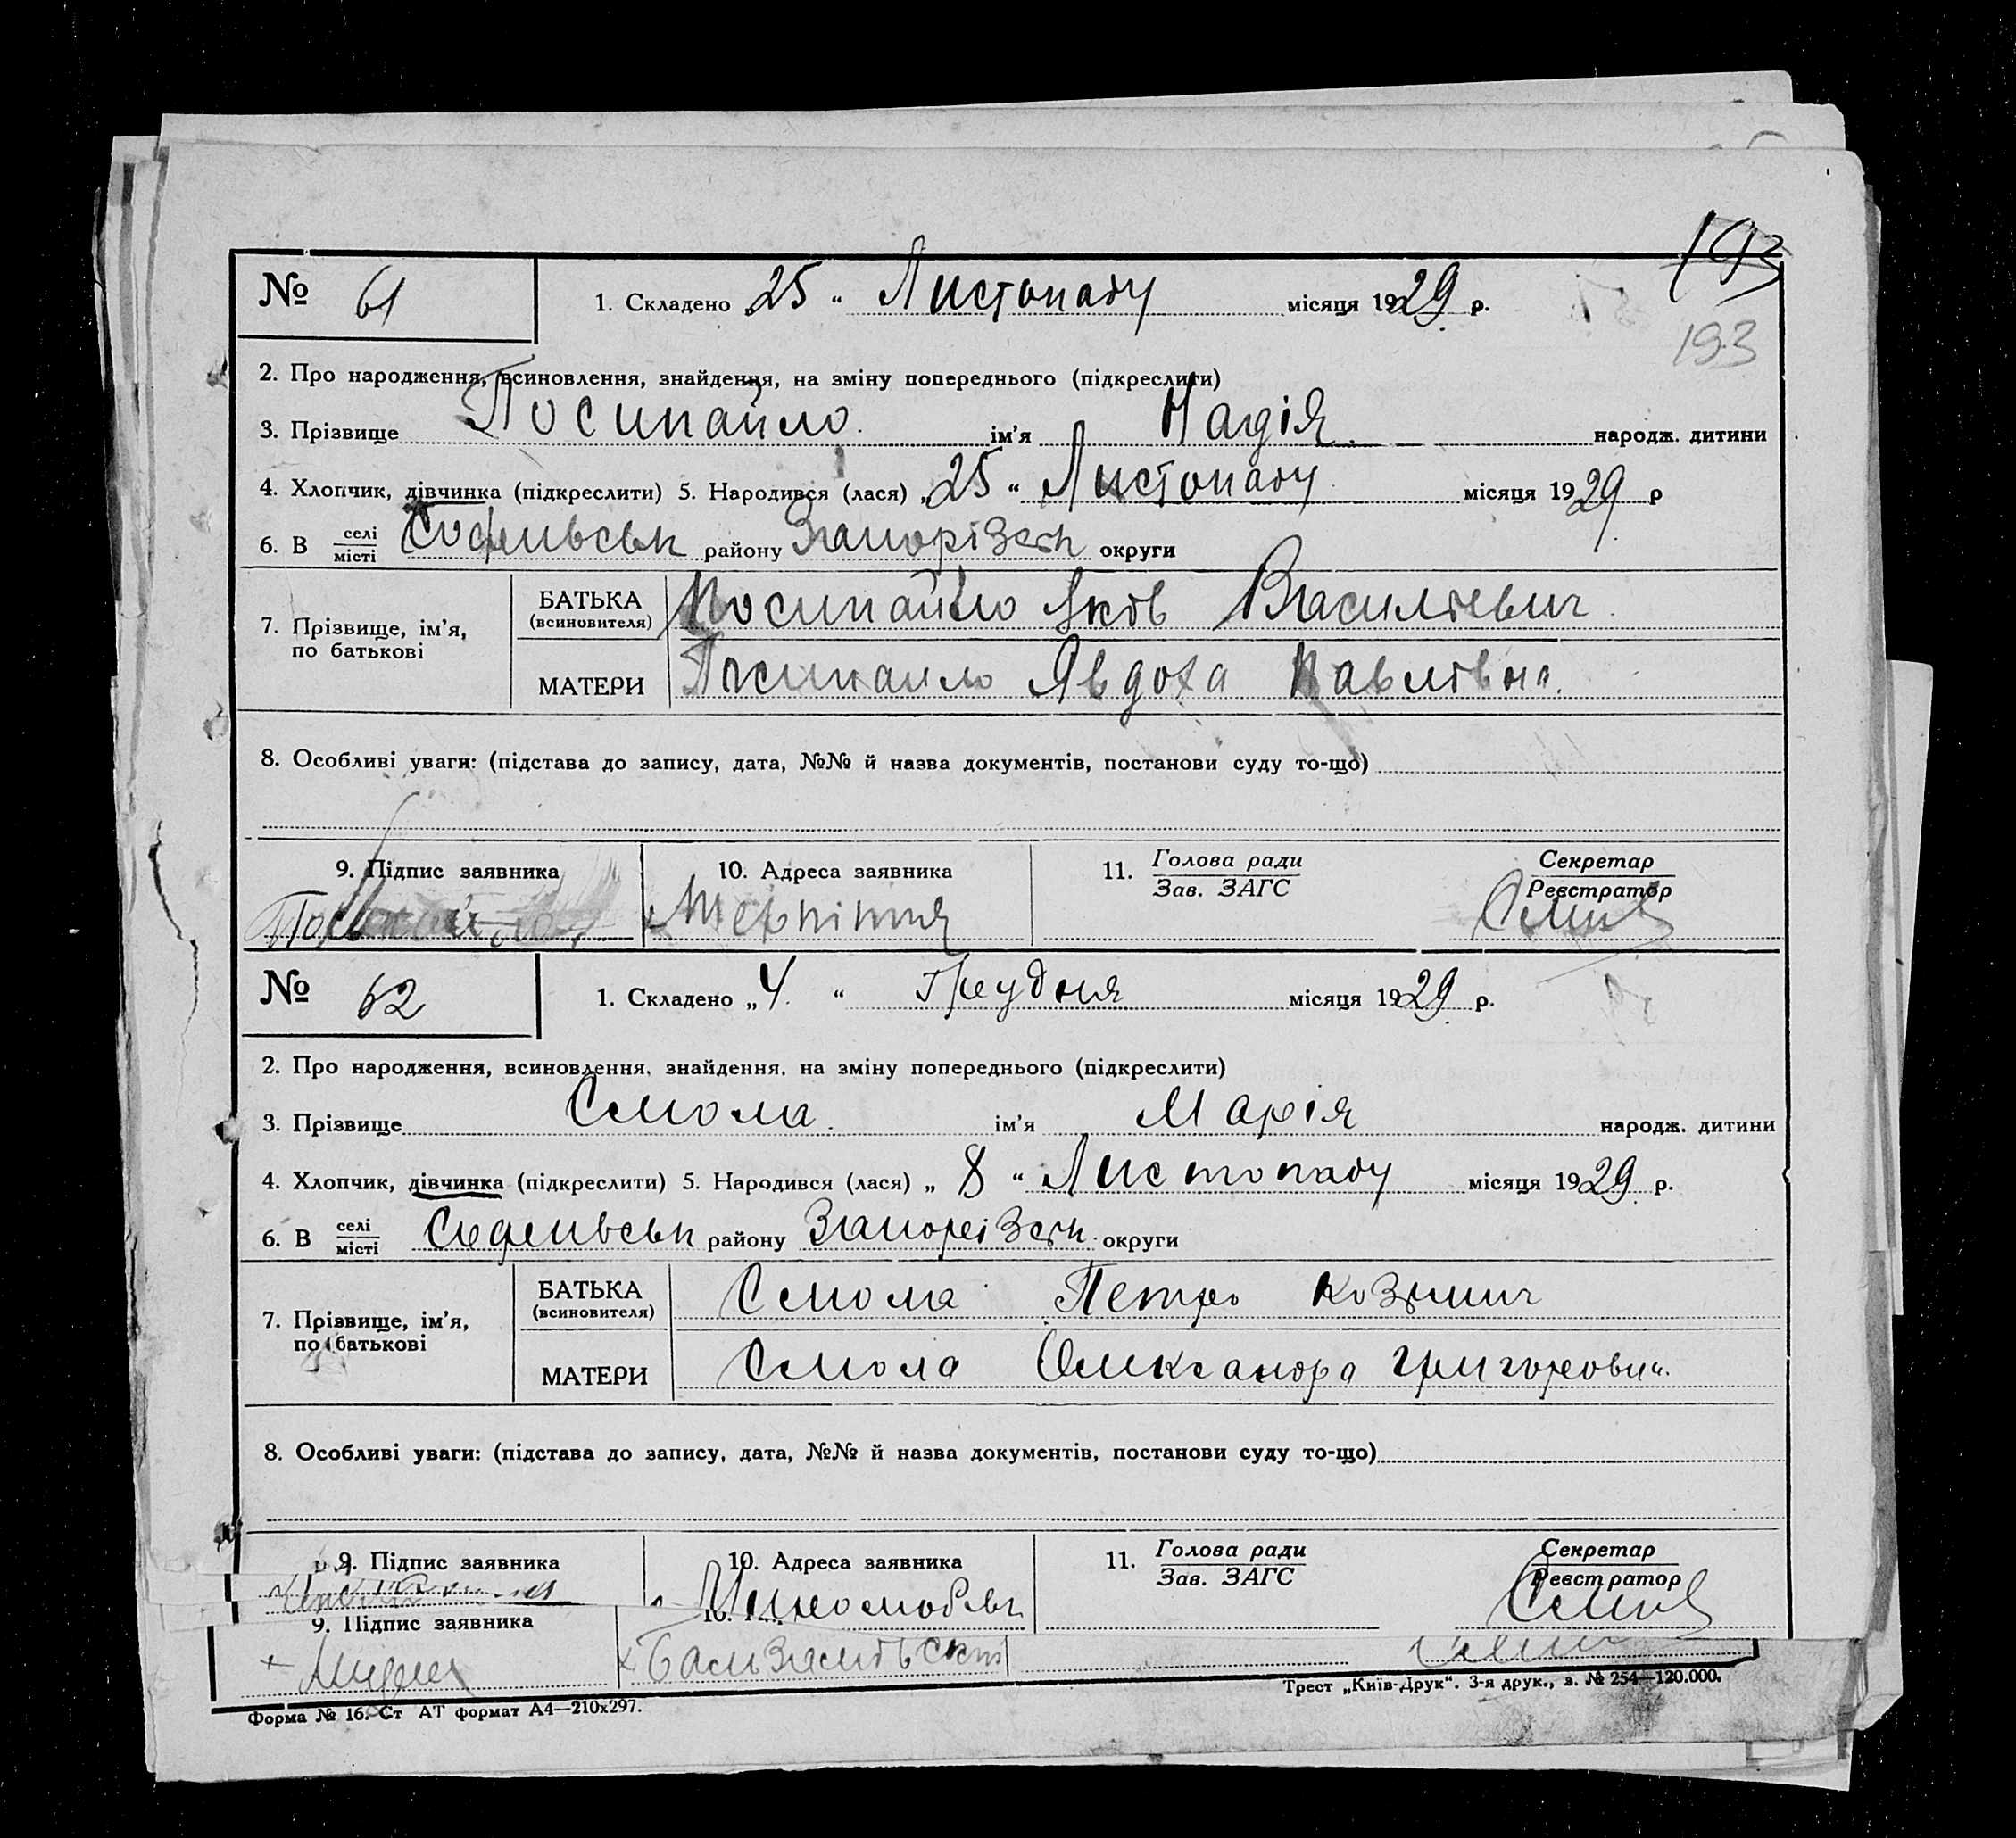 193
193
№ 61 1. Складено „25“ Листопаду місяця 1929 р.
2. Про народження, всиновлення, знайдення, на зміну попереднього (підкреслити)
3. Прізвище Посипайло ім'я Надія народж. дитини
4. Хлопчик, дівчинка (підкреслити) 5. Народився (лася) „25“ Листопаду місяця 1929 р
6. В селі місті Софиивськ району Запорізськ округи
7. Прізвище, ім'я, по батькові
БАТЬКА (всиновителя) Посипайло Яків Васильевич
МАТЕРИ Посипайло Явдоха Павлівна
8. Особливі уваги: (підстава до запису, дата, №№ й назва документів, постанови суду то-що)
9. Підпис заявника 10. Адреса заявника 11. Голова ради Зав. ЗАГС Секретар Реєстратор
Посипайло
№ 62 1. Складено „4“ Грудня місяця 1929 р.
2. Про народження, всиновлення, знайдення, на зміну попереднього (підкреслити)
3. Прізвище Смола ім'я Марія народж. дитини
4. Хлопчик, дівчинка (підкреслити) 5. Народився (лася) „8“ Листопаду місяця 1929 р.
6. В селі місті Софиивськ району Запорізськ округи
7. Прізвище, ім'я, по батькові
БАТЬКА (всиновителя) Смола Петро Козьмич
МАТЕРИ Смола Олександра Григоровн.
8. Особливі уваги: (підстава до запису, дата, №№ й назва документів, постанови суду то-що)
9. Підпис заявника 10. Адреса заявника 11. Голова ради Зав. ЗАГС Секретар Реєстратор
9. Підпис заявника
Трест „Київ-Друк“. 3-я друк., з. № 254—120.000.
Форма № 16. Ст АТ формат А4—210х297.